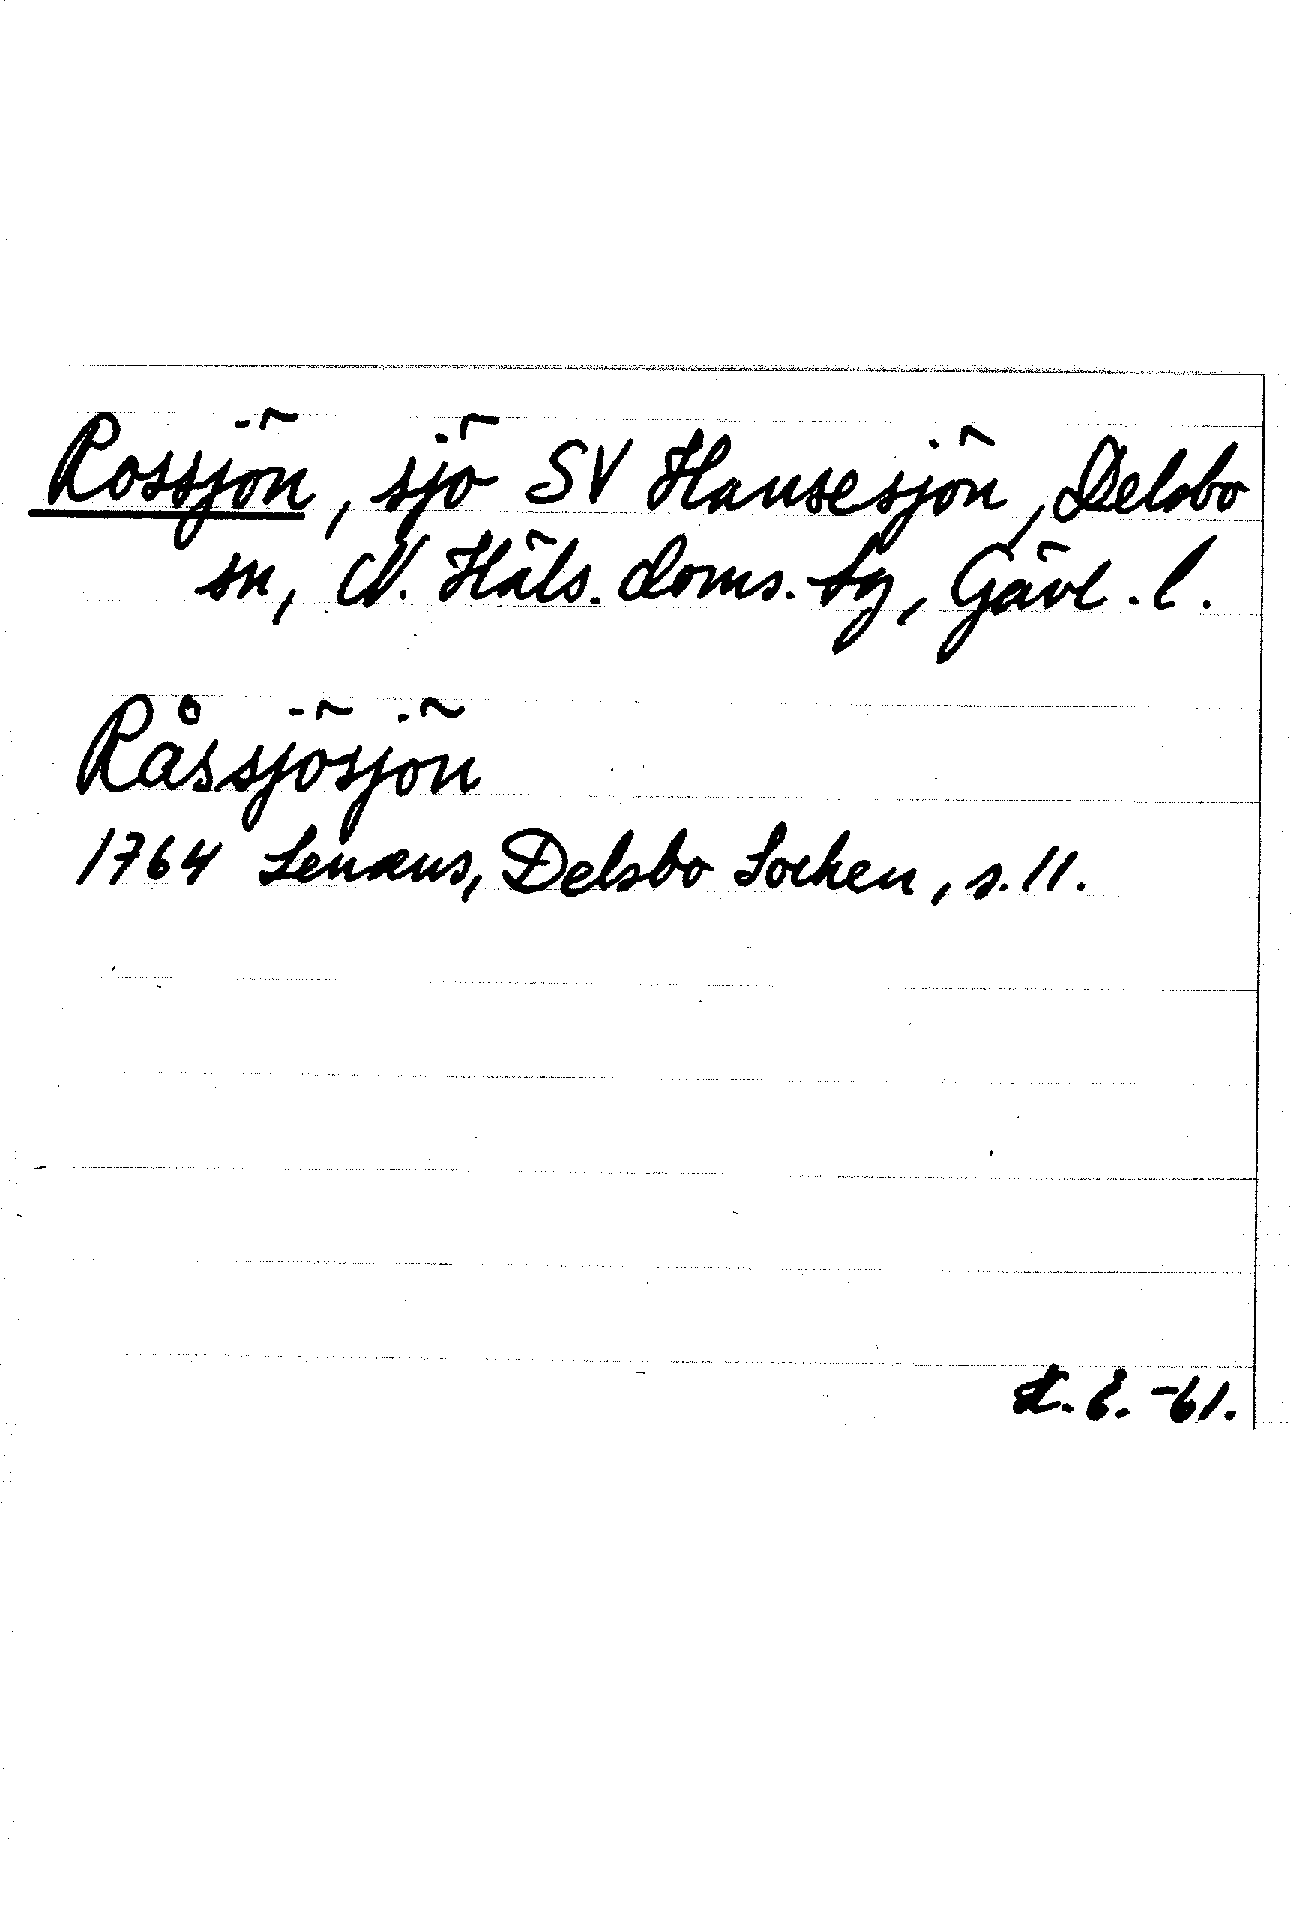 Rossjön, sjö SV Hansesjön, Delsbo
sn, N. Häls. doms.-sg, Gävl. l.
Råssjösjön
1764 Lenæus, Delsbo Socken, s. 11.
-61.